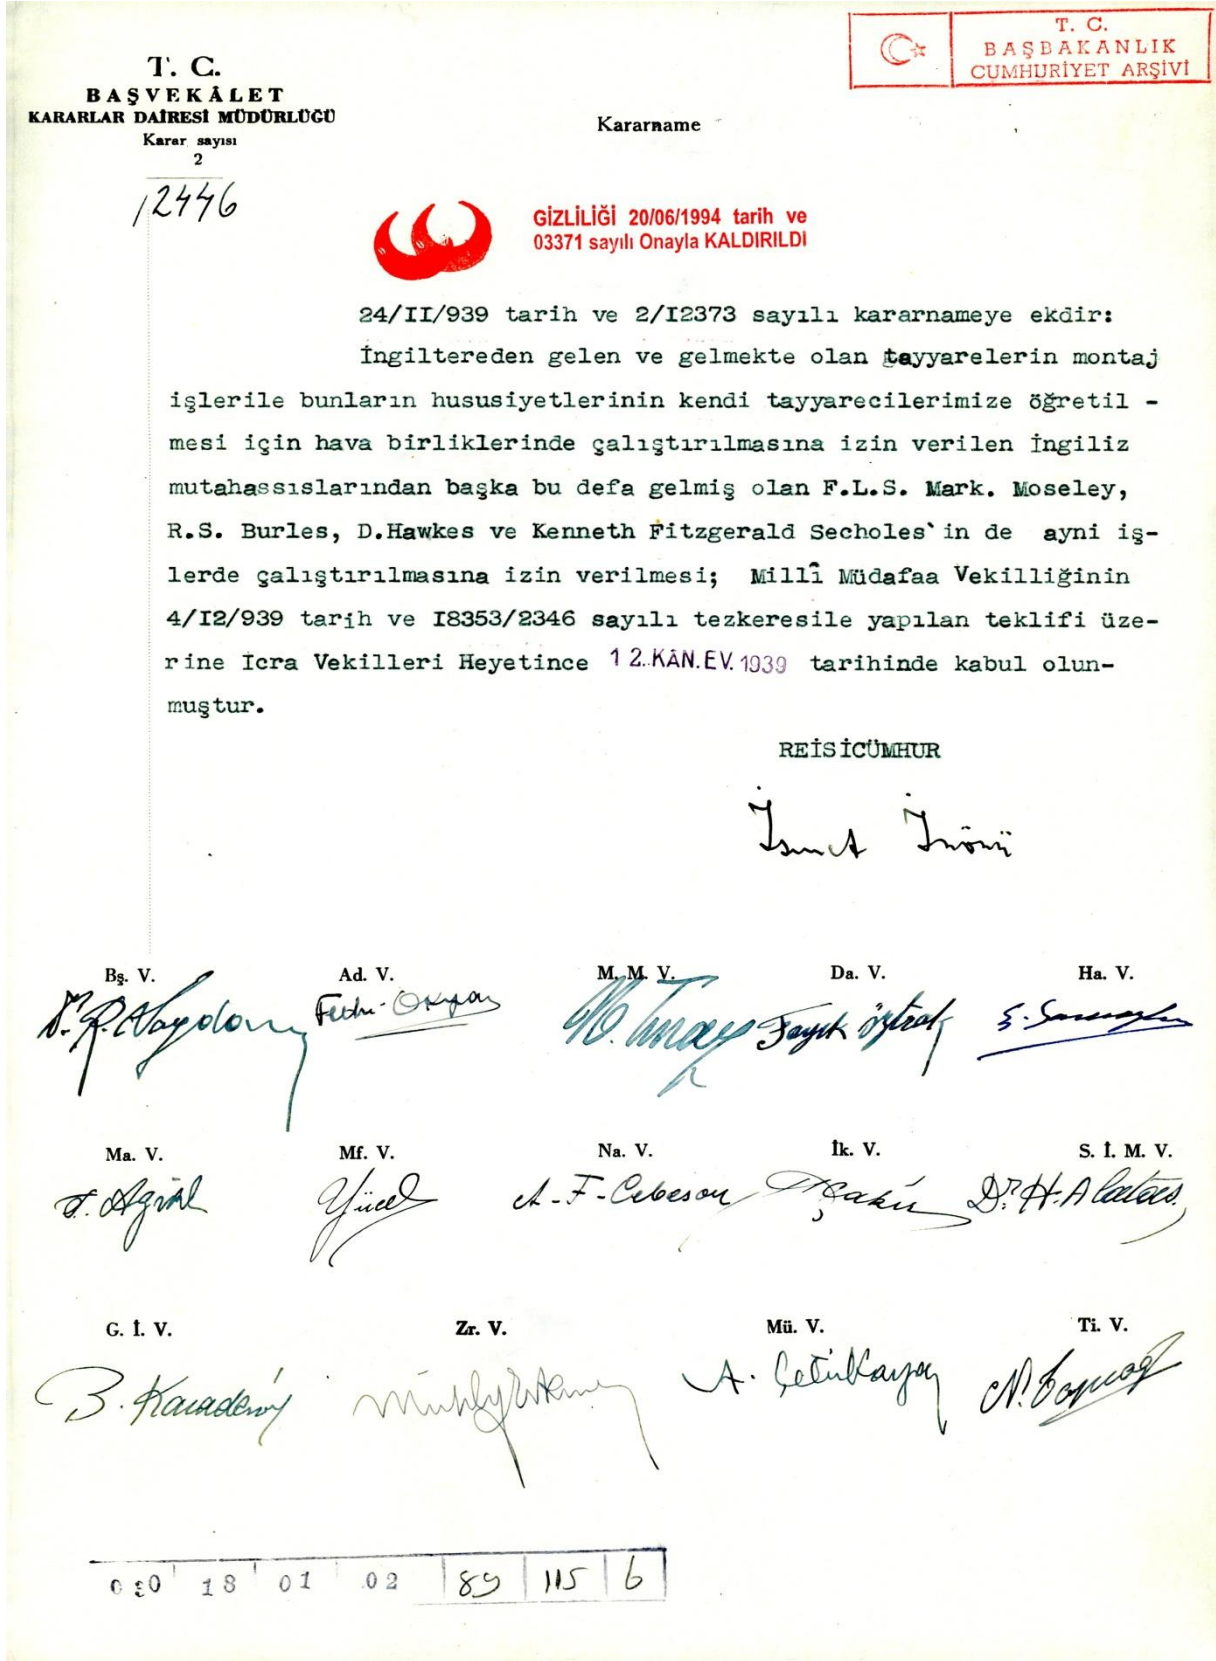 T. C.
BAŞBAKANLIK
CUMHURİYET ARŞİVİ
T. C.
BAŞVEKÂLET
KARARLAR DAİRESİ MÜDÜRLÜĞÜ
Karar sayısı
2
12446
Kararname
GİZLİLİĞİ 20/06/1994 tarih ve
03371 sayılı Onayla KALDIRILDI
24/II/939 tarih ve 2/I2373 sayılı kararnameye ekdir:
İngiltereden gelen ve gelmekte olan tayyarelerin montaj
işlerile bunların hususiyetlerinin kendi tayyarecilerimize öğretil -
mesi için hava birliklerinde çalıştırılmasına izin verilen İngiliz
mutahassıslarından başka bu defa gelmiş olan F.L.S. Mark. Moseley,
R.S. Burles, D.Hawkes ve Kenneth Fitzgerald Secholes`in de ayni iş-
lerde çalıştırılmasına izin verilmesi; Millî Müdafaa Vekilliğinin
4/I2/939 tarih ve I8353/2346 sayılı tezkeresile yapılan teklifi üze-
rine İcra Vekilleri Heyetince 12.KÂN.EV.1939 tarihinde kabul olun-
muştur.
REİSİCÜMHUR
İsmet İnönü
Bş. V. Ad. V. M. M. V. Da. V. Ha. V.
Dr. R. Saydam Fethi Okyar N. Tınaz Fayık Öztrak Ş. Saracoğlu
Ma. V. Mf. V. Na. V. İk. V. S. İ. M. V.
F. Ağralı Yücel A-F-Cebesoy H Çakır Dr. H. Alataş
G. İ. V. Zr. V. Mü. V. Ti. V.
R. Karadeniz Muhlis Erkmen A. Çetinkaya N. Topçuoğlu
030 18 01 02 89 115 6